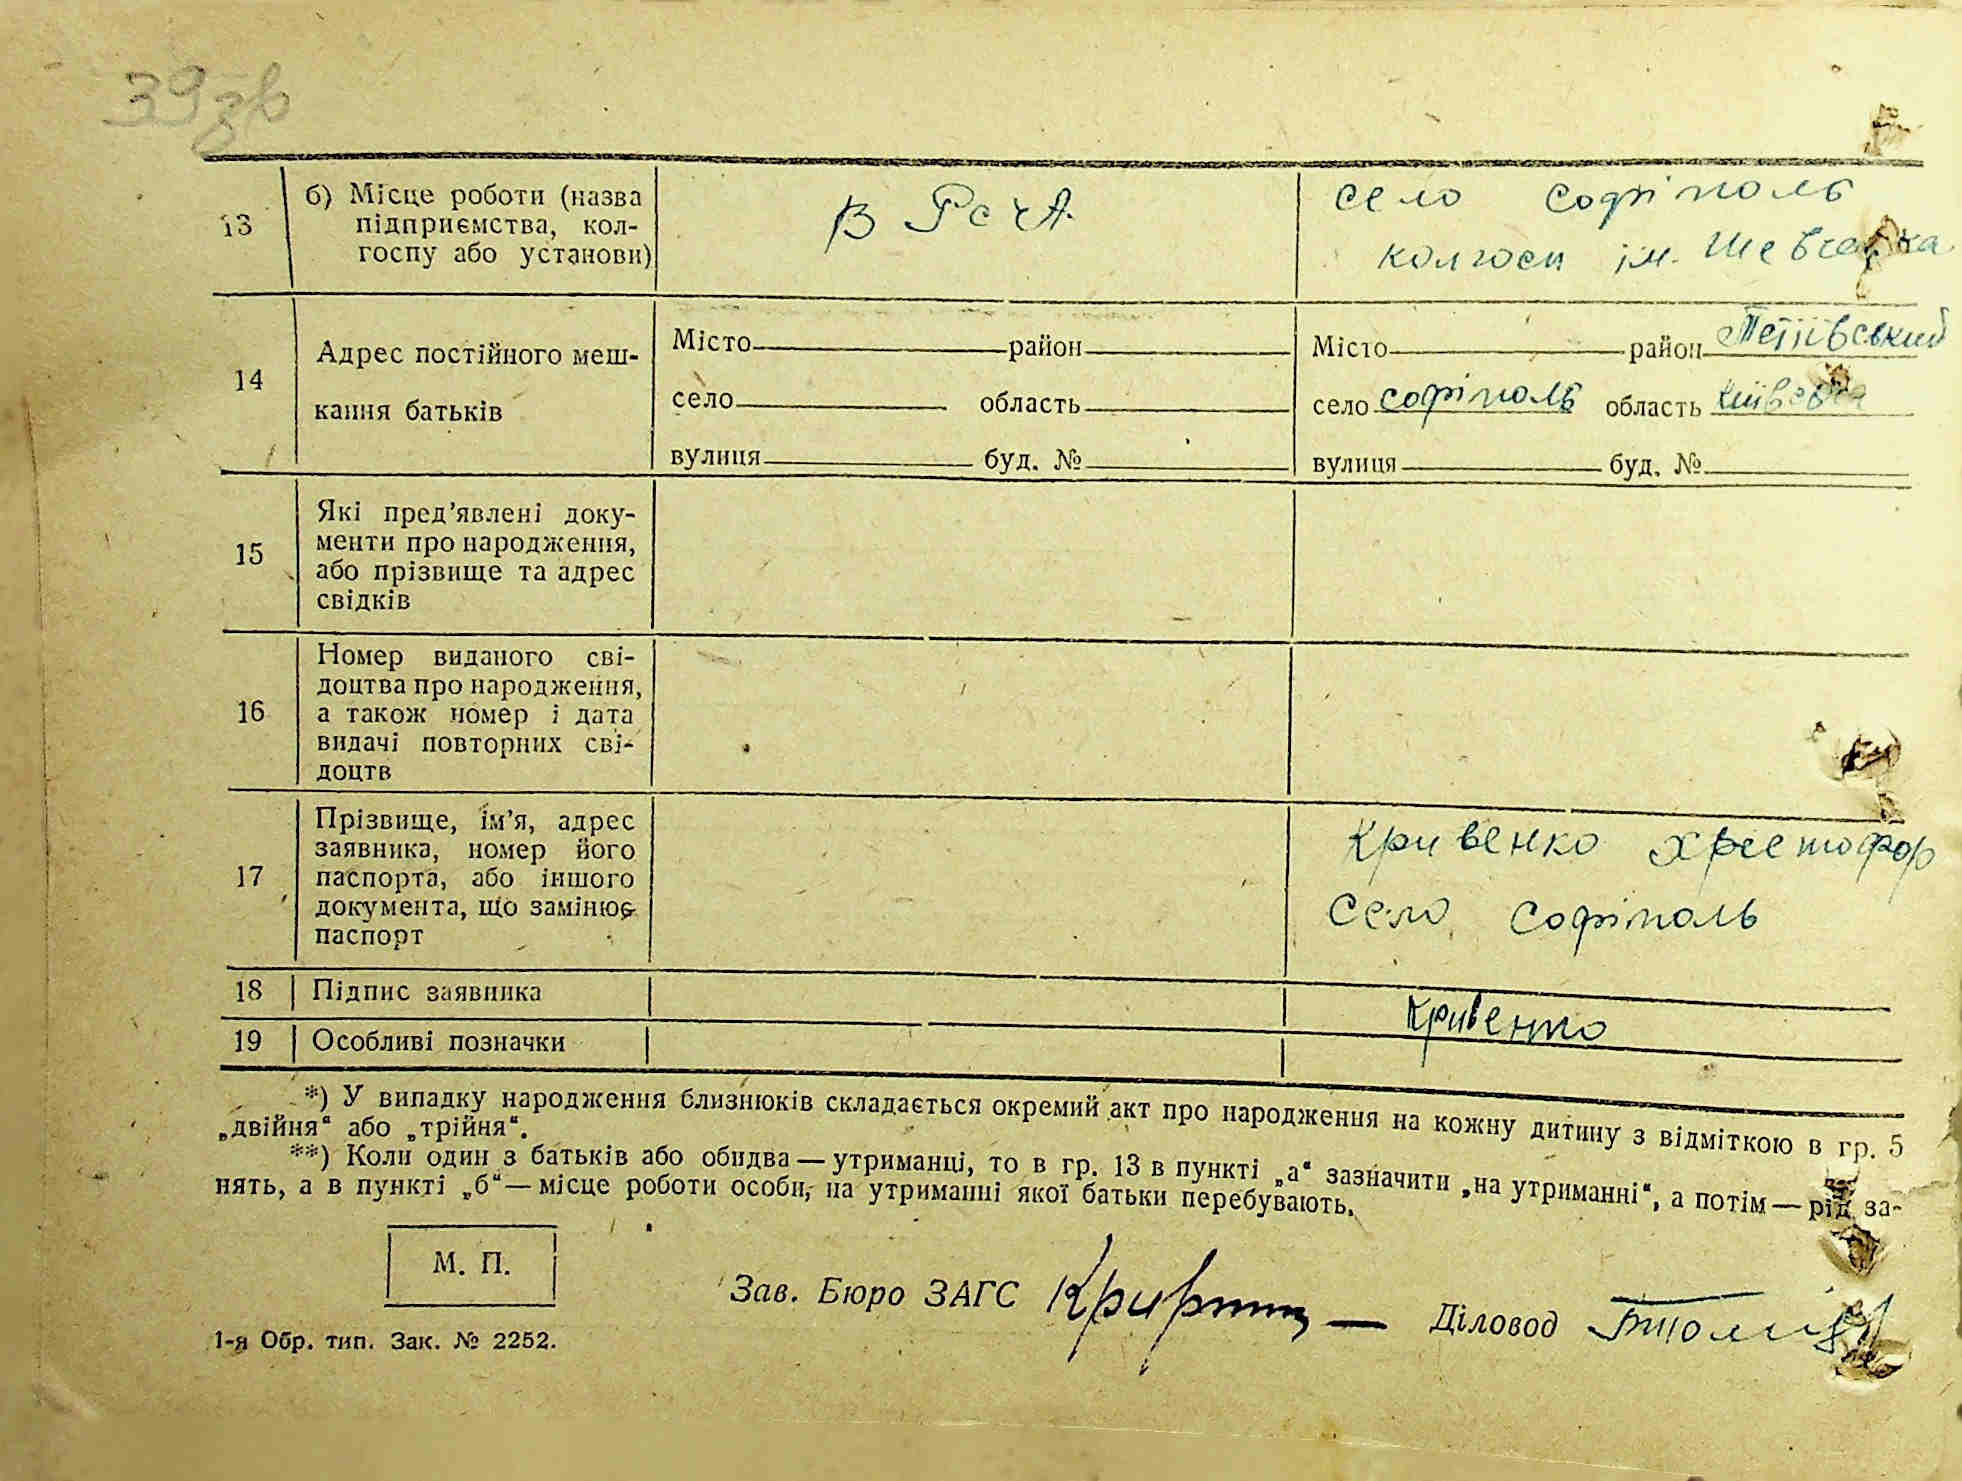 39 зв
13
б) Місце роботи (назва
підприємства, кол-
госпу або установи)
В РсчА.
село софіполь
колгосп ім. Шевченка
14
Адрес постійного меш-
кання батьків
Місто район
село область
вулиця буд. №
Місто район Тетіївський
село софіполь область Київська
вулиця буд. №
15
Які пред’явлені доку-
менти про народження,
або прізвище та адрес
свідків
16
Номер виданого сві-
доцтва про народження,
а також номер і дата
видачі повторних сві-
доцтв
17
Прізвище, ім’я, адрес
заявника, номер його
паспорта, або іншого
документа, що замінює
паспорт
Кривенко Христофор
село софіполь
18 Підпис заявника
Кривенко
19 Особливі позначки
*) У випадку народження близнюків складається окремий акт про народження на кожну дитину з відміткою в гр. 5
„двійня“ або „трійня“.
**) Коли один з батьків або обидва — утриманці, то в гр. 13 в пункті „а“ зазначити „на утриманні“, а потім — рід за-
нять, а в пункті „б“ — місце роботи особи, на утриманні якої батьки перебувають.
М. П.
Зав. Бюро ЗАГС Діловод
1-я Обр. тип. Зак. № 2252.